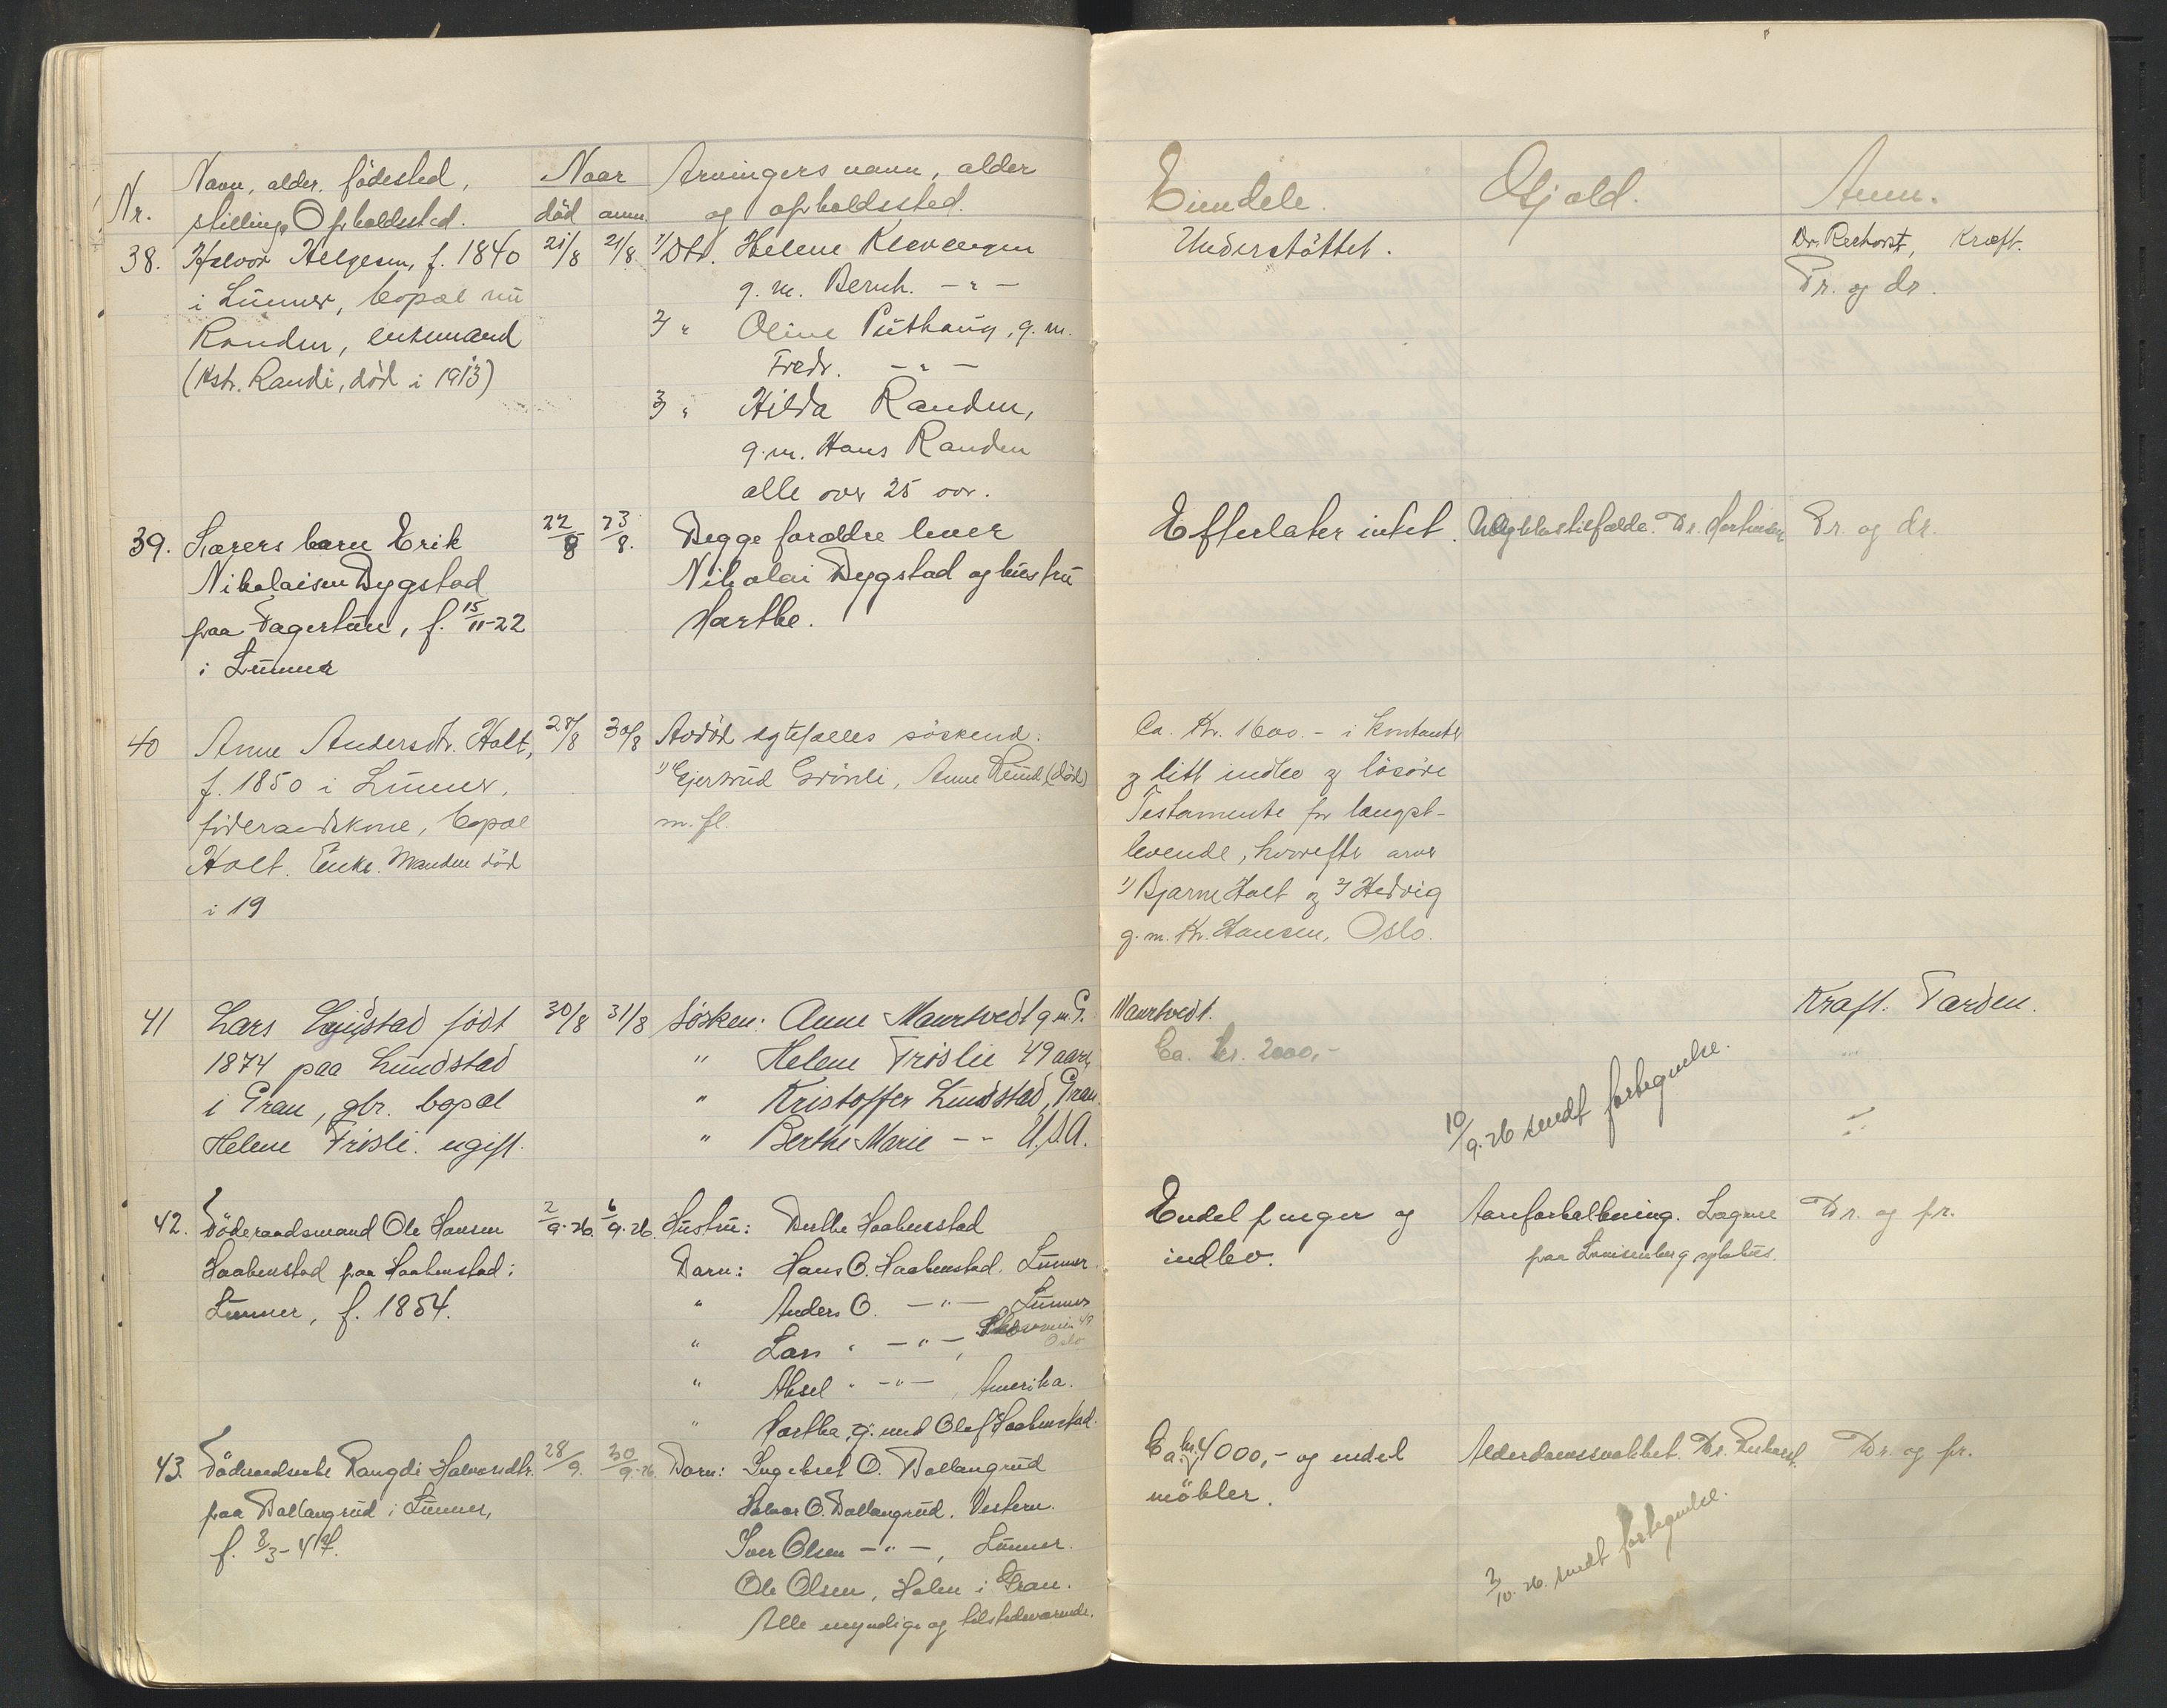 Nr.
Navn, alder, fødested,
stilling, Opholdssted.
Naar
død anm.
Arvingers navn, alder
og opholdssted.
Eiendele.
Gjæld.
Anm.
38. Halvor Helgesen, f. 1840
i Lunner, bopæl
Randen, enkemand
(Hstr. Randi, død i 1913)
21/8 21/8
1/ Dtr. Helene Klevengen
g. m. Bernh. - " -
2/ " Oline Puthaug, g. m.
Fredr. - " -
3/ " Hilda Randen,
g. m. Hans Randen
alle over 25 aar.
Understøttet.
Dr. Kraft.
Pr. og dr.
39. Lærers barn Erik
Nikolaisen Dygstad
paa Fagertun, f. 15/11-22
i Lunner
22/8 23/8.
Begge forældre lever
Nikolai Dygstad og hustru
Marthe.
Efterlater intet.
Ulykkestilfælde. Dr.
Pr. og dr.
40 Anne Andersdtr. Holt,
f. 1850 i Lunner,
føderaadskone, bopæl
Holt. Enke. Manden død
i 19
28/8 30/8
Avdød egtefælles søskend:
1/ Gjertrud Grinli, Anne (død)
m. fl.
Ca. Kr. 1600.- i kontanter
og litt indbo og løsøre
Testamente for længst-
levende, hvorefter arver
1/ Bjarne Holt og 2/ Hedvig
g. m. Kr. Hansen, Oslo.
41 Lars Lundstad født
1874 paa Lundstad
i Gran, gbr. bopæl
Helene Frøsli. ugift.
30/8 31/8
Søsken: Anne Maurtvedt g. m. G. Maurtvedt.
" Helene Frøslie 49 aar,
" Kristoffer Lundstad, Gran.
" Berthe Marie - " - U.S.A.
Ca. kr. 2000,-
10/9.26 sendt fortegnelse.
Kraft. Tarden.
42. Føderaadsmand Ole Hansen
Haakenstad paa Haakenstad i
Lunner, f. 1854.
2/9.26. 6/9.26.
Hustru: Berthe Haakenstad
Barn: Hans O. Haakenstad. Lunner.
" Anders O. - " - Lunner
" Lars " - " -, 49 Oslo
" Aksel " - " -, Amerika.
" Marthe, g. med Olaf Haakenstad.
Endel penger og
indbo.
Aareforkalkning. Lægene
paa Lovisenberg sykehus.
Dr. og pr.
43. Føderaadsenke Rangdi Halvorsdtr.
paa Ballangrud i Lunner,
f. 8/3-47.
28/9. 30/9.26.
Barn: Ingebret O. Ballangrud
Halvor O. Ballangrud. Vestern.
Iver Olsen - " -, Lunner.
Ole Olsen, Holen i Gran.
Alle myndige og tilstedeværende.
Ca. kr. 4000,- og endel
møbler.
Alderdomssvakhet. Dr.
Dr. og pr.
2/10.26. sendt fortegnelse.